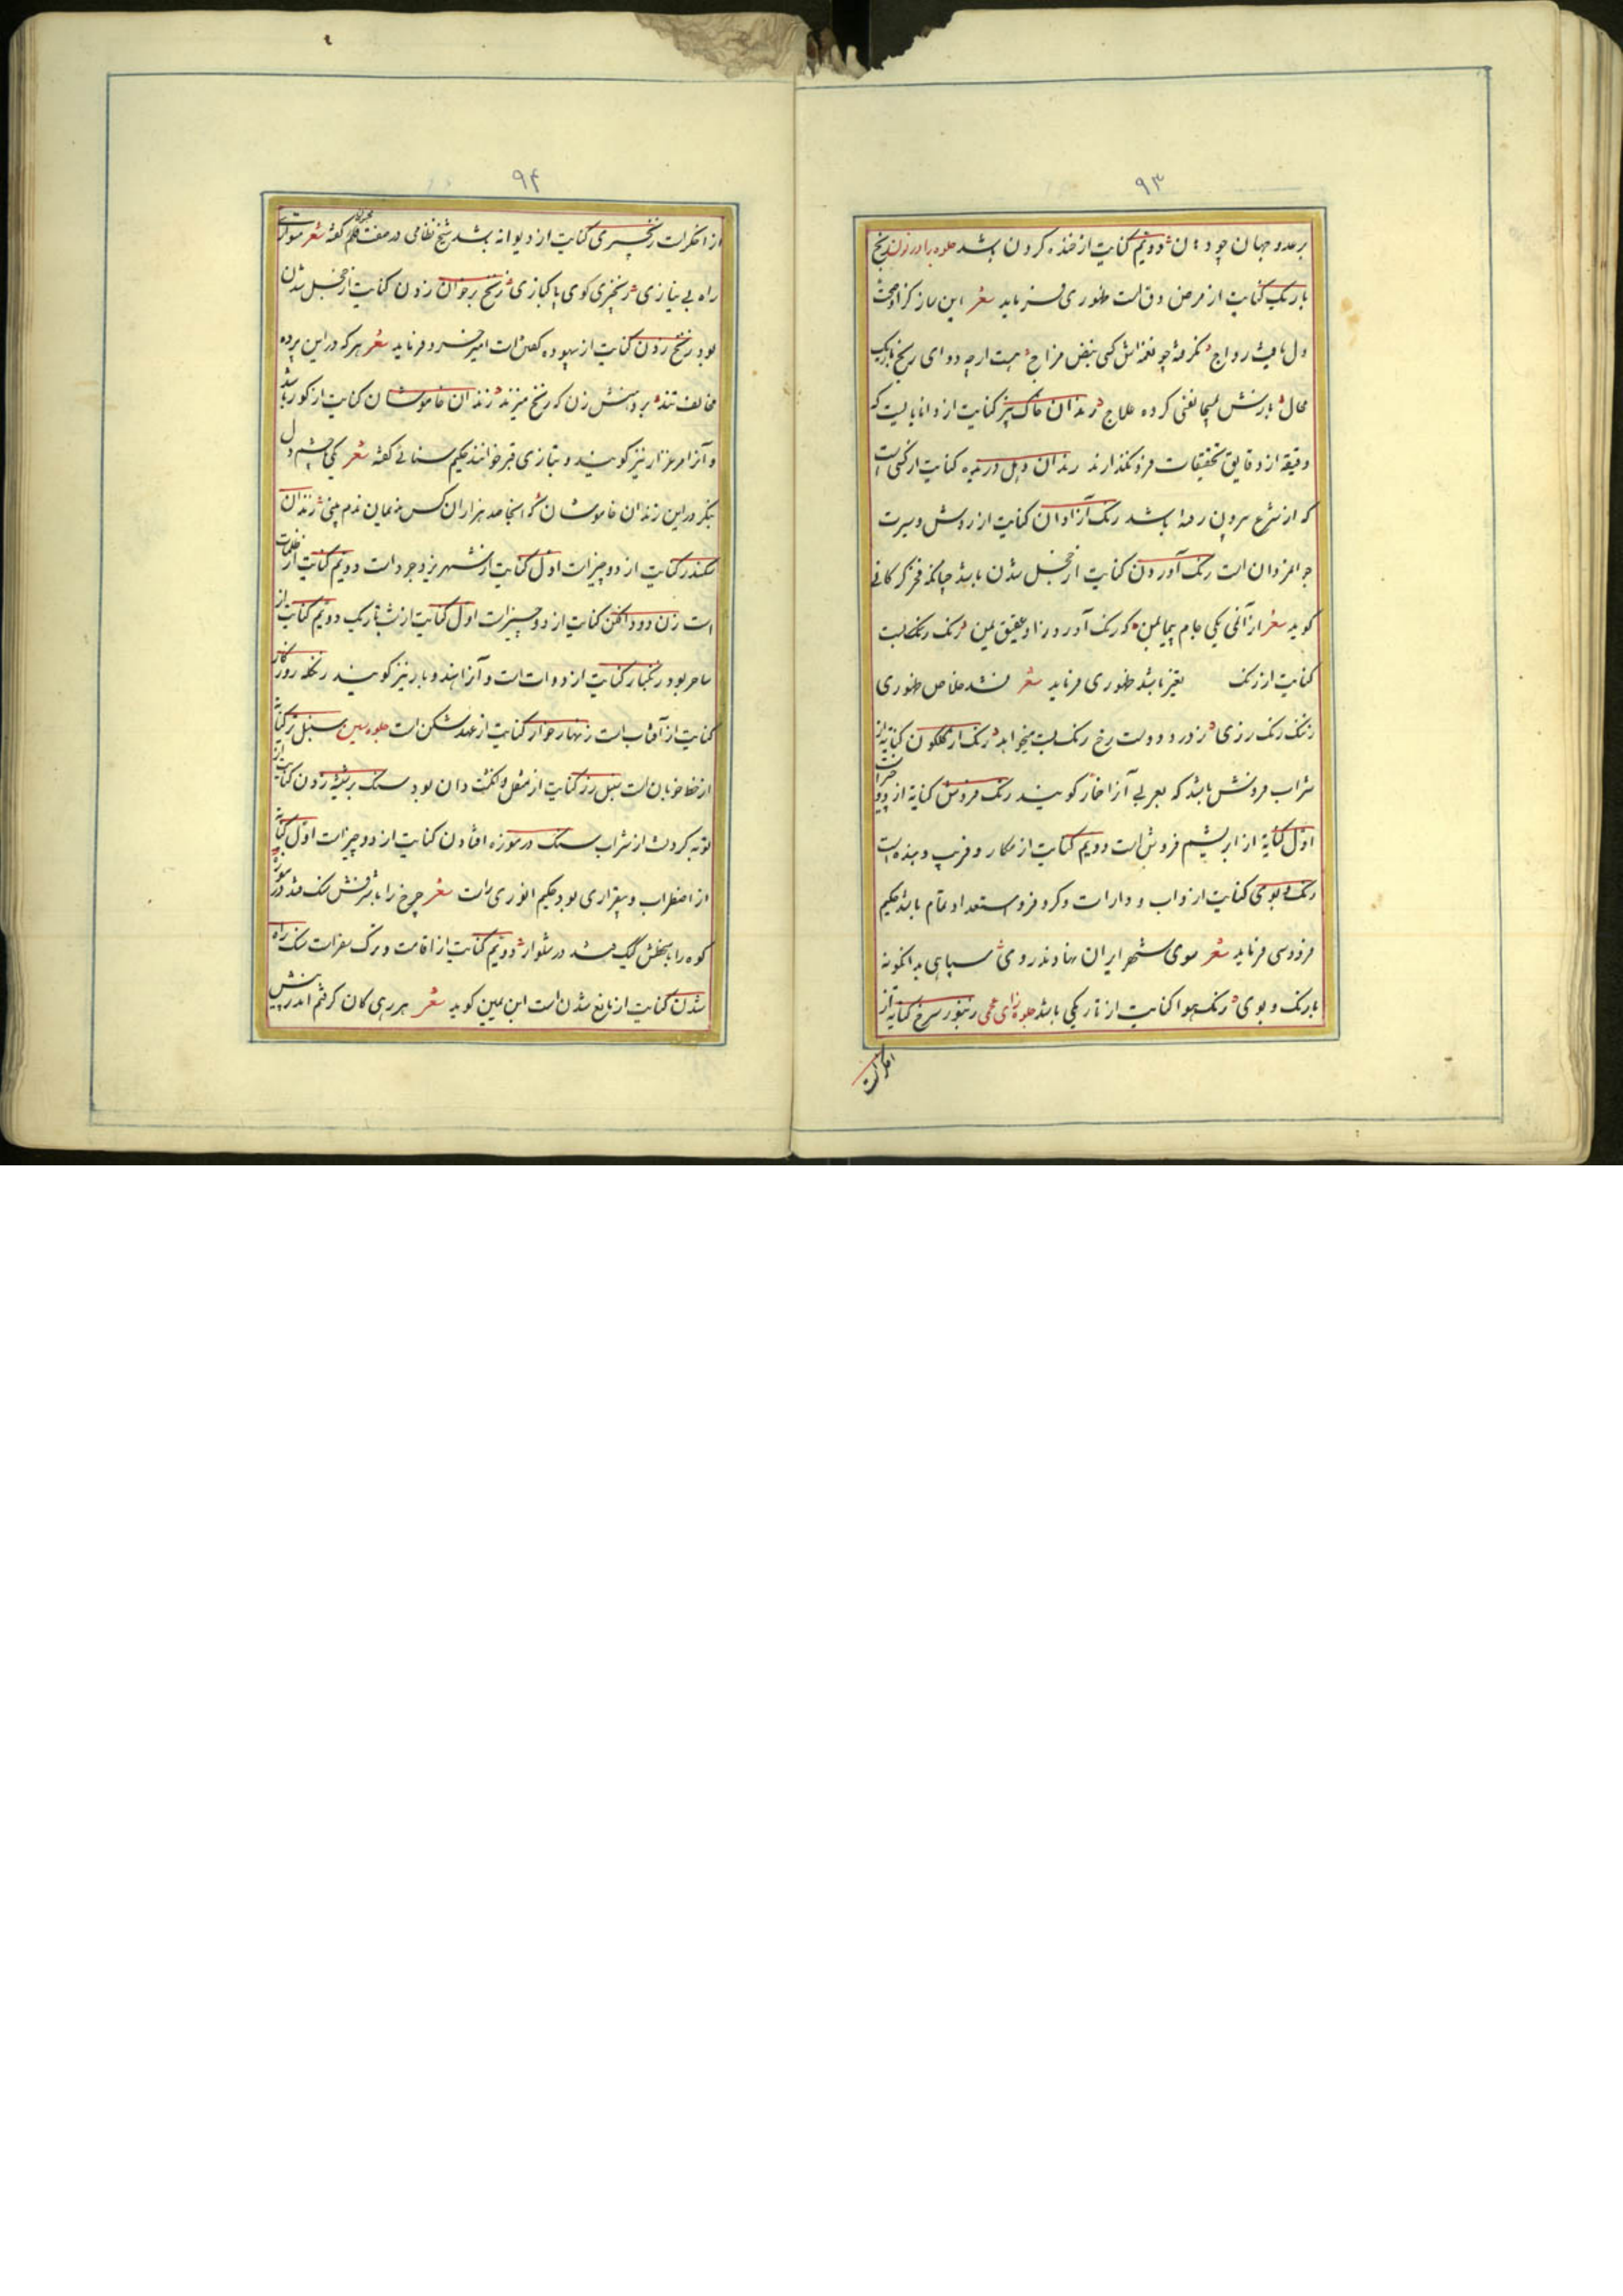 ۹۳
بر عدو جهان چو دندان دویم کنایت از خنده کردن باشد جلوه را در زدن رنج
باریک کنایت از مرض دق است ظهوری فرماید شعر این ساز کز او صحت
دل یافت رواج نگرفته چو نغمه‌اش کسی نبض مزاج هست ارچه دوای رنج باریک
محال نارنش مسیحا نفسی کرده علاج رندان خاک بیز کنایت از دانایانیست که
دقیقه از دقایق تحقیقات فرو نگذارند رندان دهل دریده کنایت از کسی است
که از شرع بیرون رفته باشد رنگ آزادان کنایت از روش و سیرت
جوانمردان است رنگ آوردن کنایت از خجل شدن باشد چنانکه فخر گرکانی
گوید شعر از آن می یکی جام پیمای بمن که رنگ آورد زاد عقیق یمن رنگ رنگ بست
کنایت از رنگ بغیر باشد ظهوری فرماید شعر نشد خلاص ظهوری
زننگ رنگ رزی زدر دو دولت رخ رنگ بست میخواهد رنگ از گلگون کنایة از
شراب فروش باشد که بعربی آنرا خمار گویند رنگ فروش کنایة از دو چیز است
اول کنایة از ابریشم فروش است دویم کنایت از مکار و فریب دهنده است
رنگ و بوی کنایت از داب و دارات و کر و فر و استعداد تمام باشد حکیم
فردوسی فرماید شعر سوی شهر ایران نهادند روی سپاهی بدانگونه
با رنگ و بوی رنگ هوا کنایت از تاریکی باشد جلوه زای عجمی زنبور سرخ کنایة از
اخگر است
۹۴
از اخگر است زنجیری کنایت از دیوانه باشد شیخ نظامی در صفت مجنون کفته شعر سودای
راه بی نیازی زنجیری کوی پاکبازی زنخ بر خوان زدن کنایت از خجل شدن
بود زنخ زدن کنایت از بیهوده کفتن است امیر خسرو فرماید شعر هر که در این پرده
مخالف تند بر دهنش زن که زنخ میزند زندان خاموشان کنایت از کور باشد
و آنرا مرغزار نیز گویند و بتازی قبر خوانند حکیم سنائی کفته شعر یکی چشم دل
بنگر در این زندان خاموشان که اینجا صد هزاران کس ندیمان ندم بینی زندان
سکندر کنایت از دو چیز است اول کنایت از شهر یزدجرد است دویم کنایت از ظلمات
است زن دود افکن کنایت از دو چیز است اول کنایت از شب تاریک دویم کنایت از
ساحر بود زنگبار کنایت از دوات است و آنرا هندوبار نیز گویند زنگله روزگار
کنایت از آفتاب است زنهار خوار کنایت از عهد شکن است جلوه سین سنبل تر کنایة
از خط خوبان است سبل رز کنایت از منقل و انکشت دان بود سنک بر شیشه زدن کنایت از
توبه کردن از شراب سنک در موزه افتادن کنایت از دو چیز است اول کنایة
از اضطراب و بیقراری بود حکیم انوری راست شعر چرخ را با شرفش سنک فتد در موزه
کوه را با سخطش کیک فتد در شلوار دویم کنایت از اقامت و ترک سفر است سنک راه
شدن کنایت از مانع شدن است ابن یمین گوید شعر هر رهی کان کرفتم اندر پیش